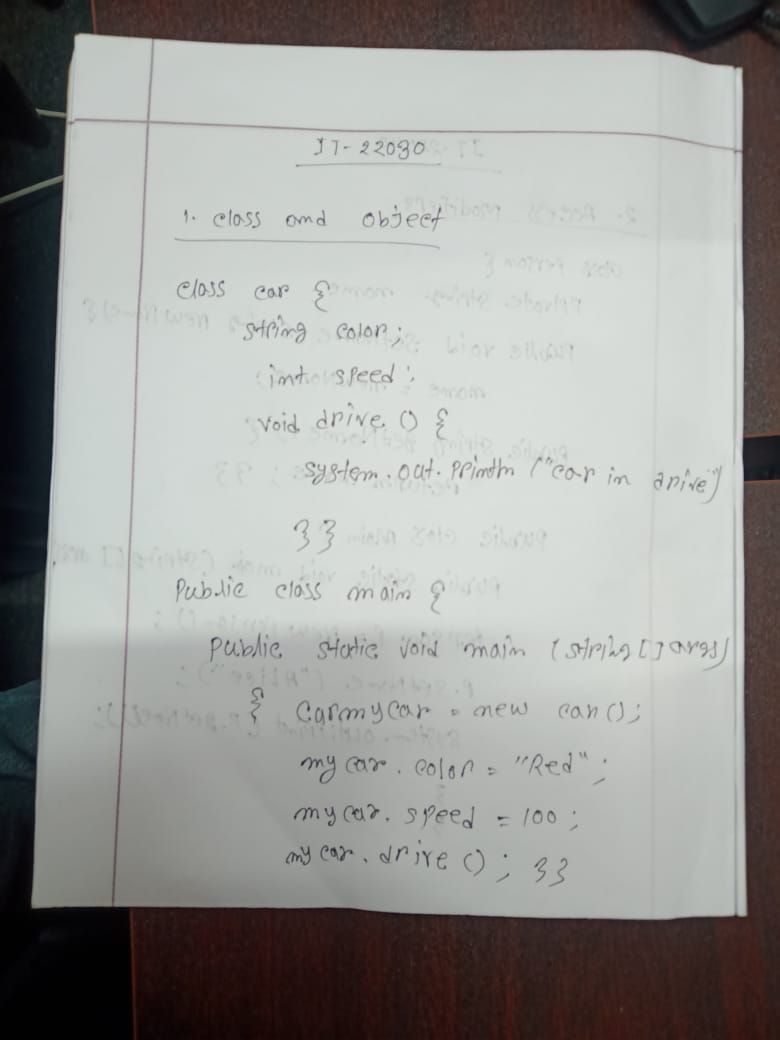 IT-22030
1. class and object
class car {
string color;
int speed;
void drive () {
system.out.println ("car in drive")
}}
Public class main {
public static void main (string [] args)
{ Carmycar = new car();
my car. color = "Red";
my car. speed = 100;
my car. drive (); }}